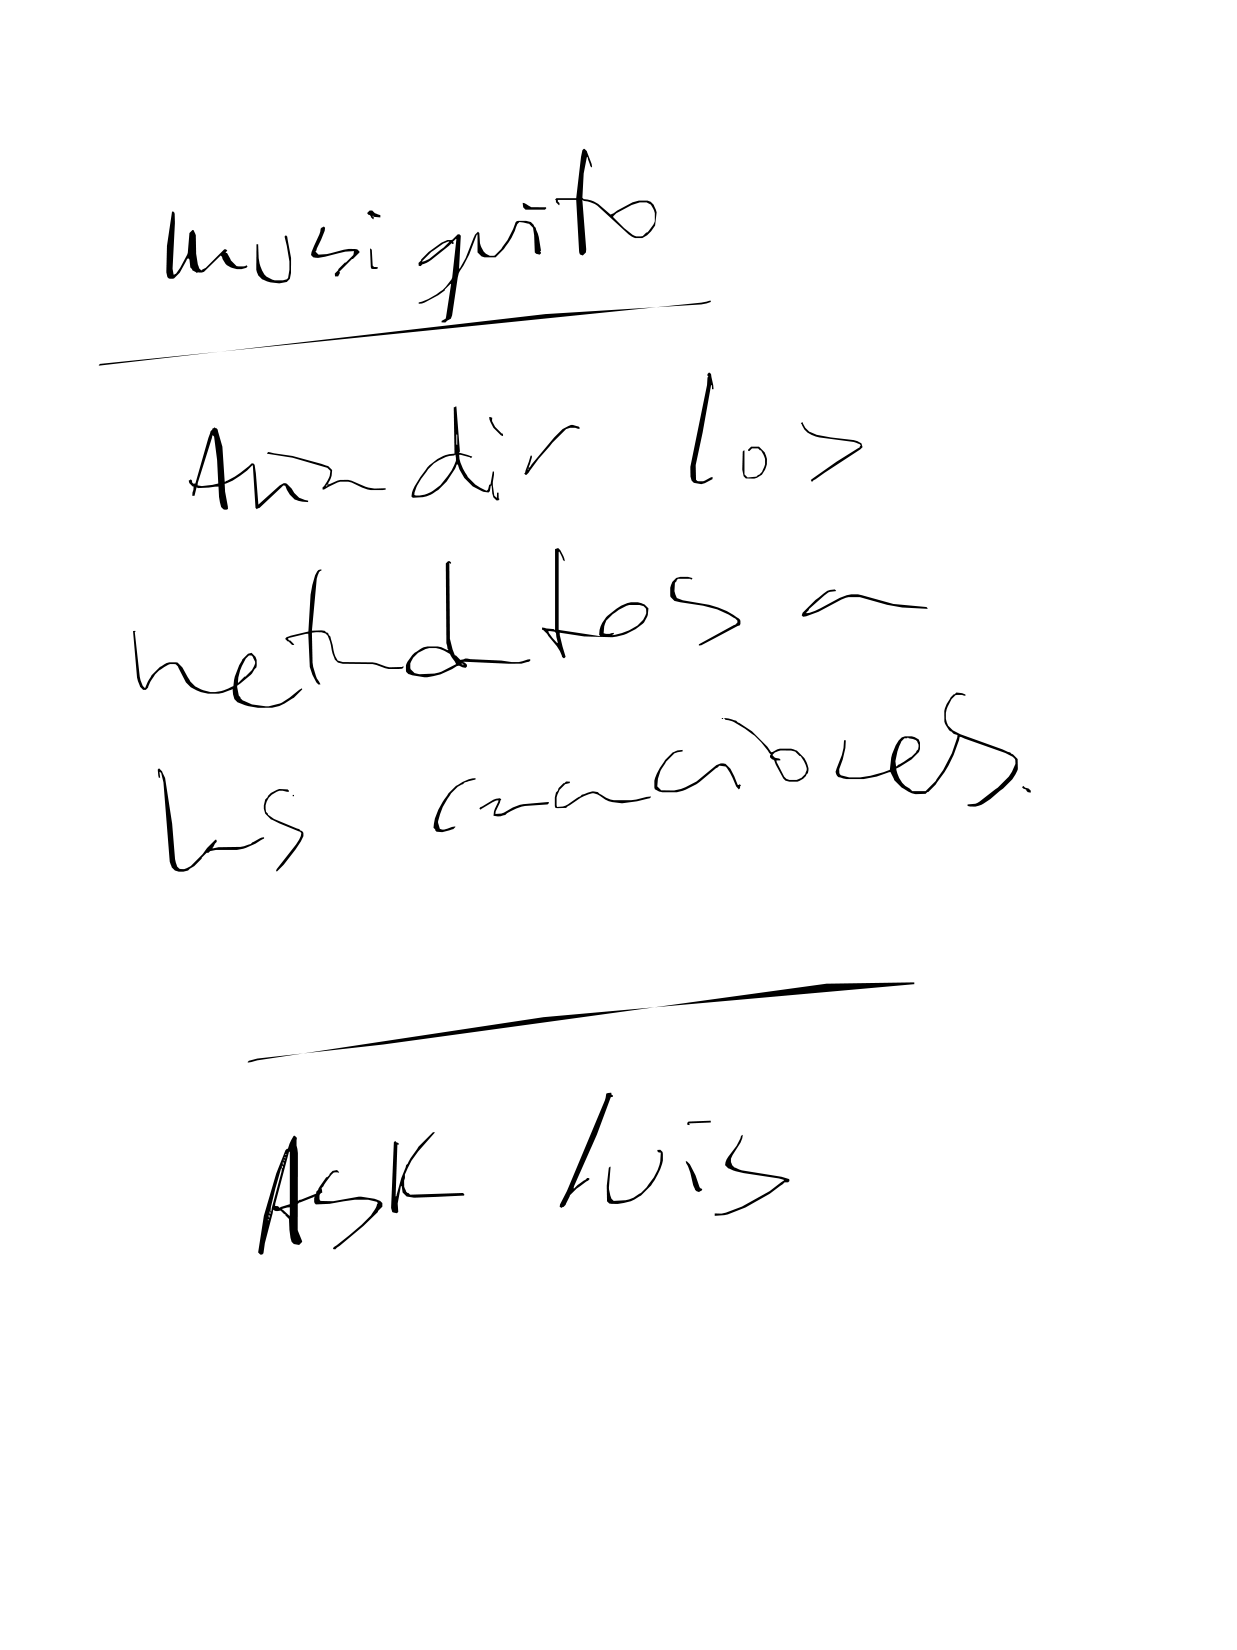 musiquito
Añadir los
metadatos a
las canciones.
Ask luis